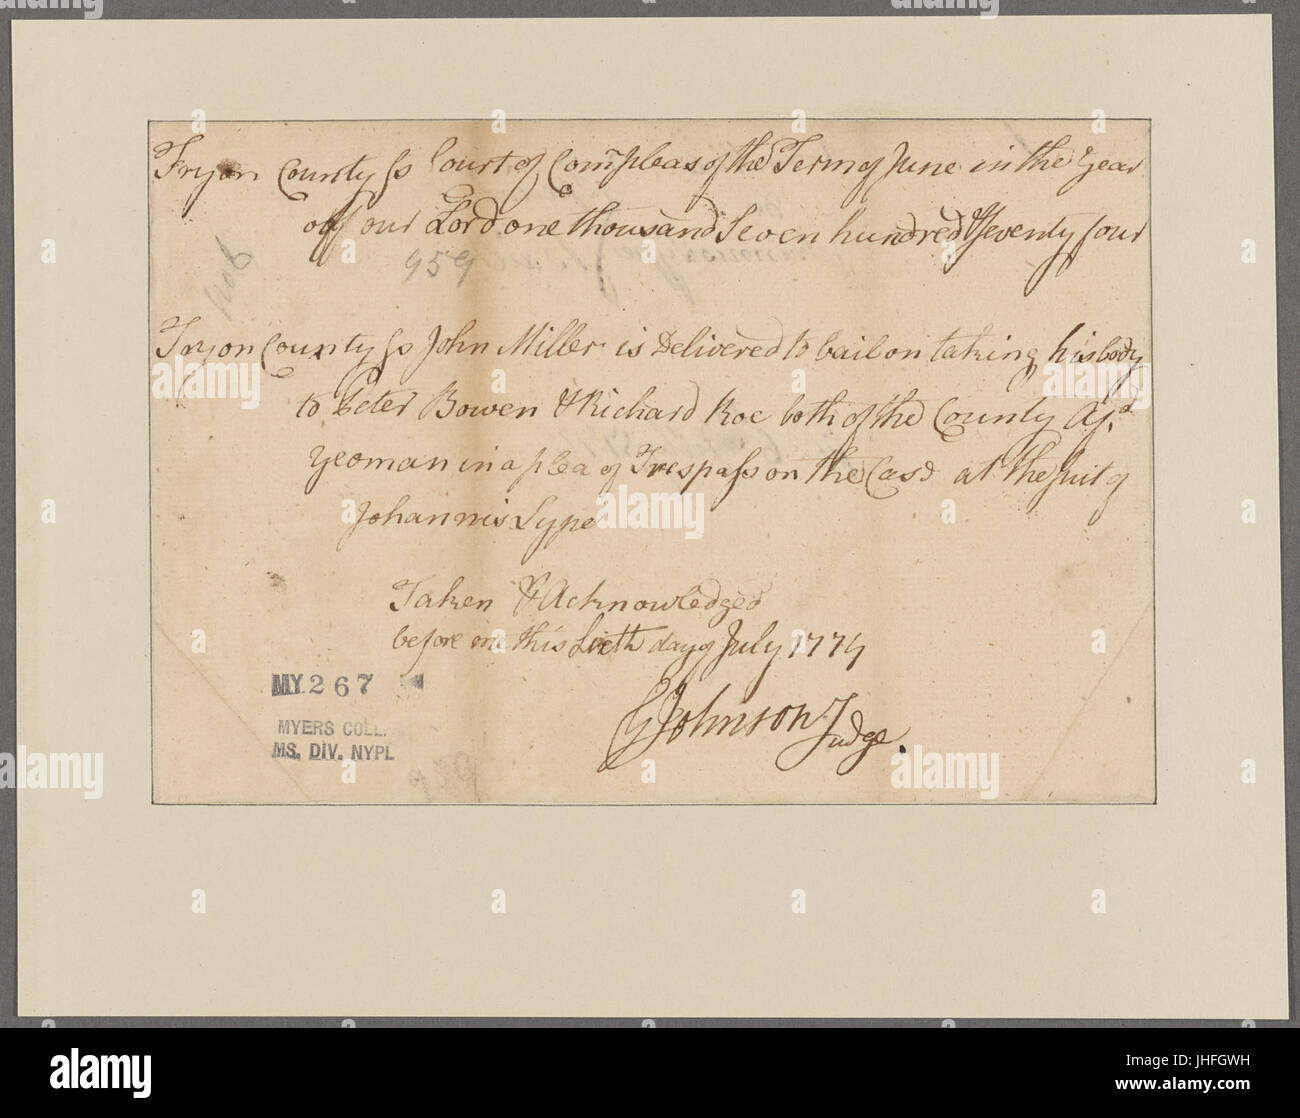 Tryon County ss Court of Com pleas of the Term of June in the Year
off our Lord one thousand Seven hundred & Seventy four
959
Tryon County ss John Miller is Delivered to bail on taking his body
to Peter Bowen & Richard Roe both of the County Afd
Yeoman in a plea of Trespass on the Case at the Suit of
Johannis Lype
Taken & Acknowledged
before me this day of July 1774
G Johnson Judge.
MY 267
MYERS COLL.
MS. DIV. NYPL
alamy
Image ID: JHFGWH
www.alamy.com